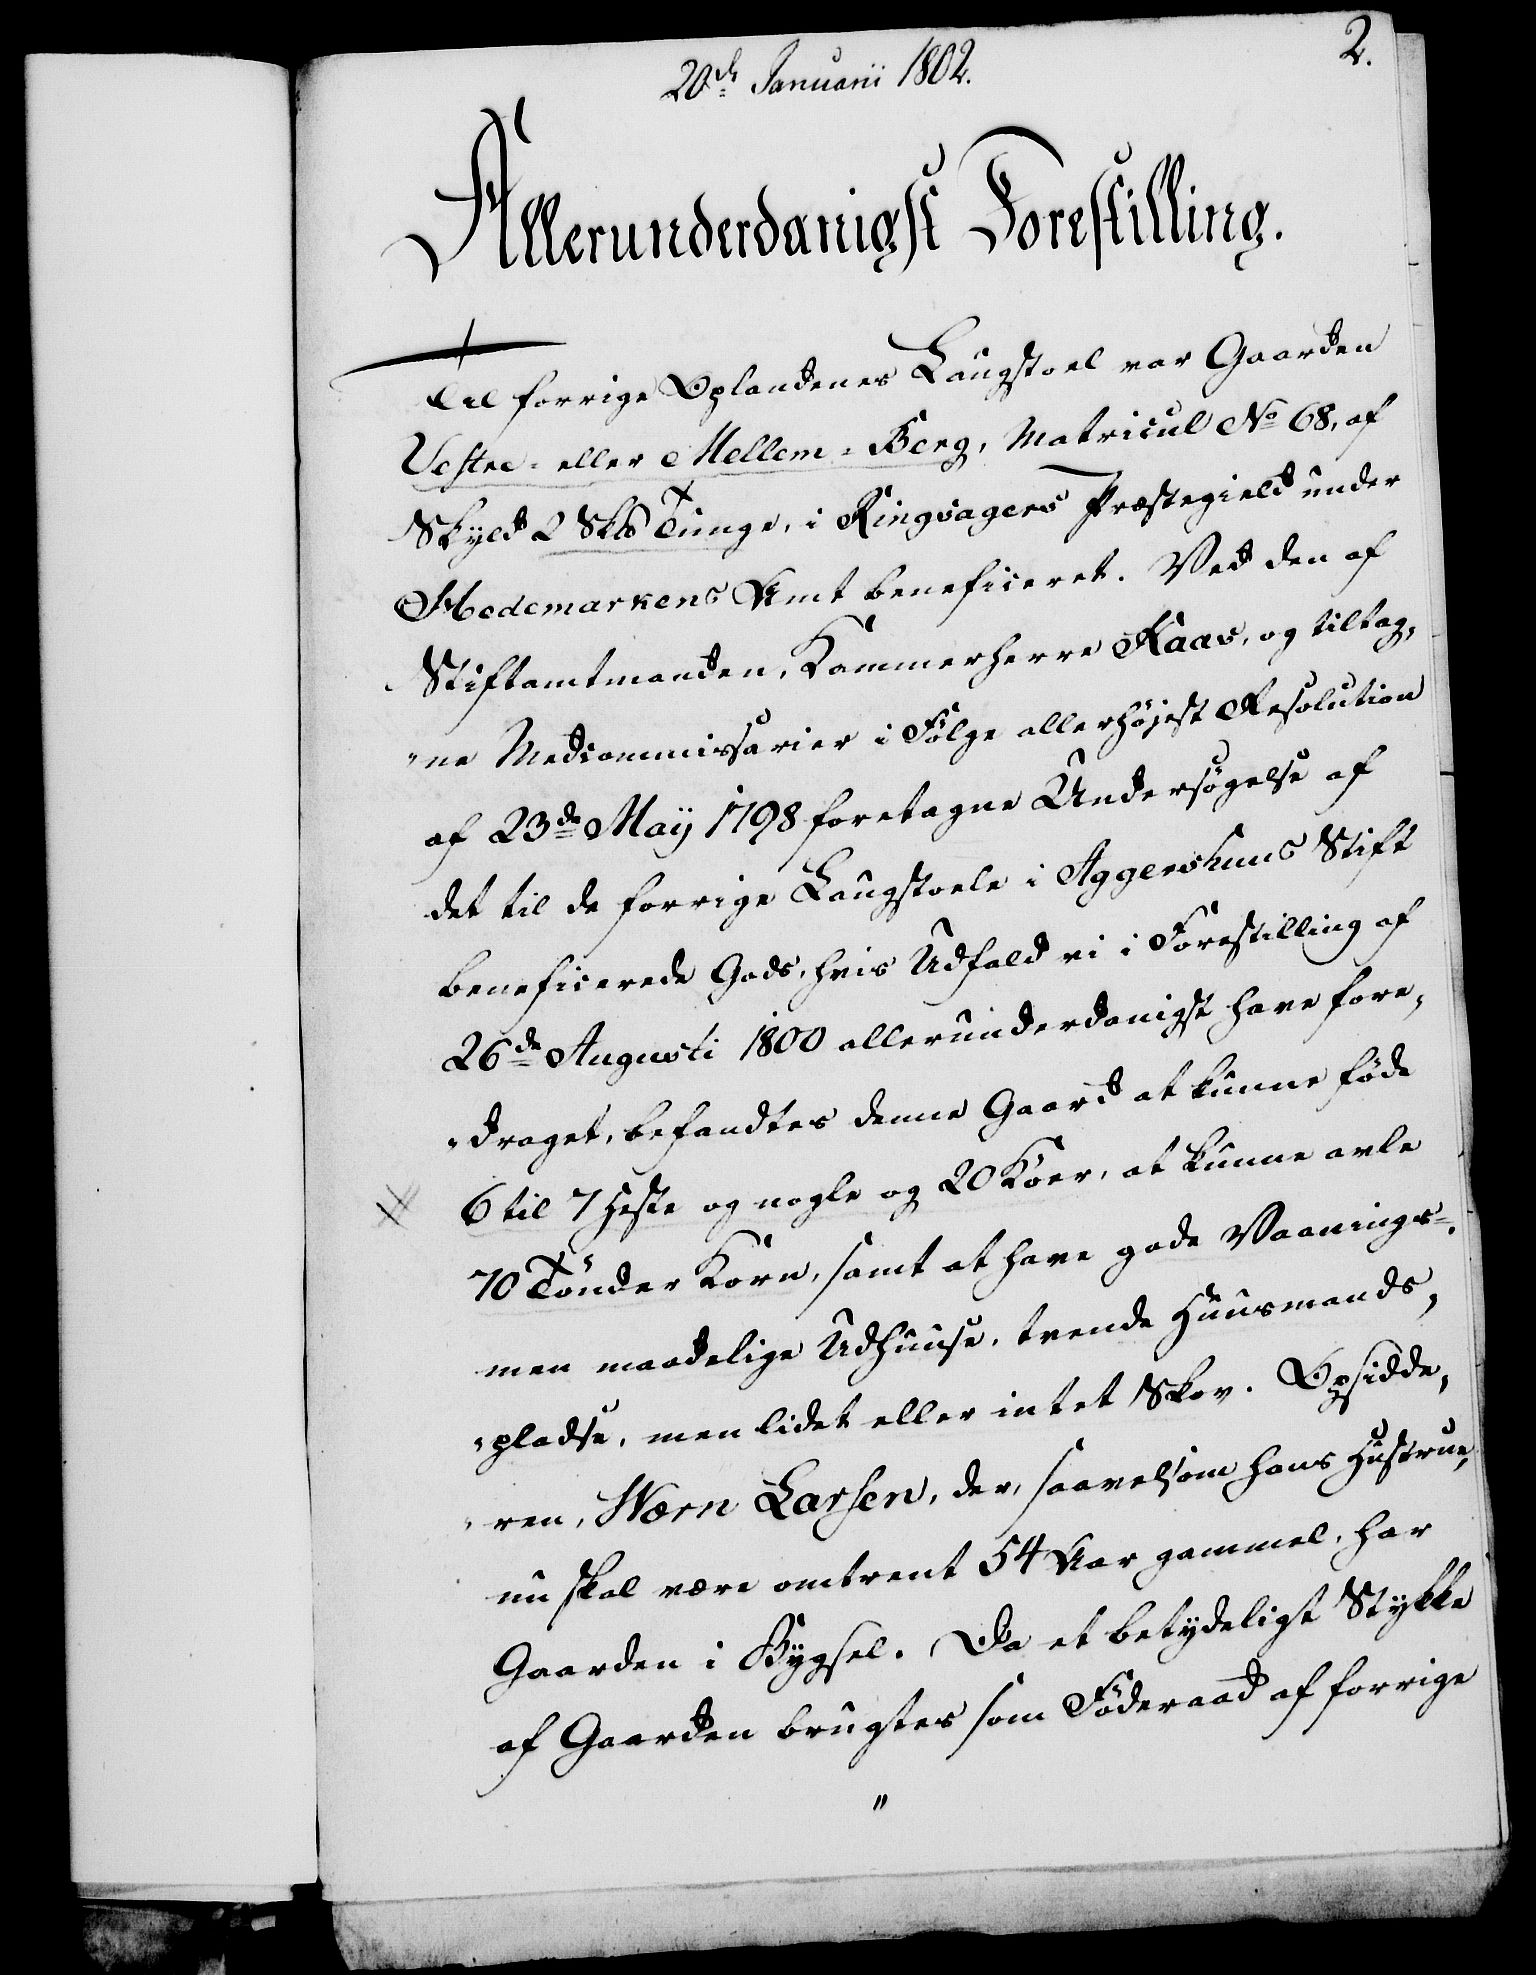 20de Januarii 1802.
2.
Allerunderdanigst Forestilling.
Til forrige Oplandenes Laugstoel var Gaarden
Vestre- eller Mellem-Berg, Matricul No 68, af
Skyld 2 Skd Tunge, i Ringsagers Præstegield under
Hedemarkens Amt beneficeret. Ved den af
Stiftamtmanden, Kammerherre Kaas, og tiltag,
"ne Medcommissarier i Følge allerhöjest Resolution
af 23de Maÿ 1798 foretagne Undersögelse af
det til de forrige Laugstoele i Aggershuus Stift
beneficerede Gods, hvis Udfald vi i Forestilling af
26de Augusti 1800 allerunderdanigst have fore,
"draget, befandtes denne Gaard at kunne föde
6 til 7 Heste og nogle og 20 Köer, at kunne avle
70 Tönder Korn, samt at have gode Vaanings-,
men maadelige Udhuuse, trende Huusmands,
"pladse, men lidet eller intet Skov. Opsidde,
"ren, Nærn Larsen, der, saavelsom hans Hustrue,
nu skal være omtrent 54 Aar gammel, har
Gaarden i Bygsel. Da et betydeligt Stykke
af Gaarden brugtes som Föderaad af forrige
"